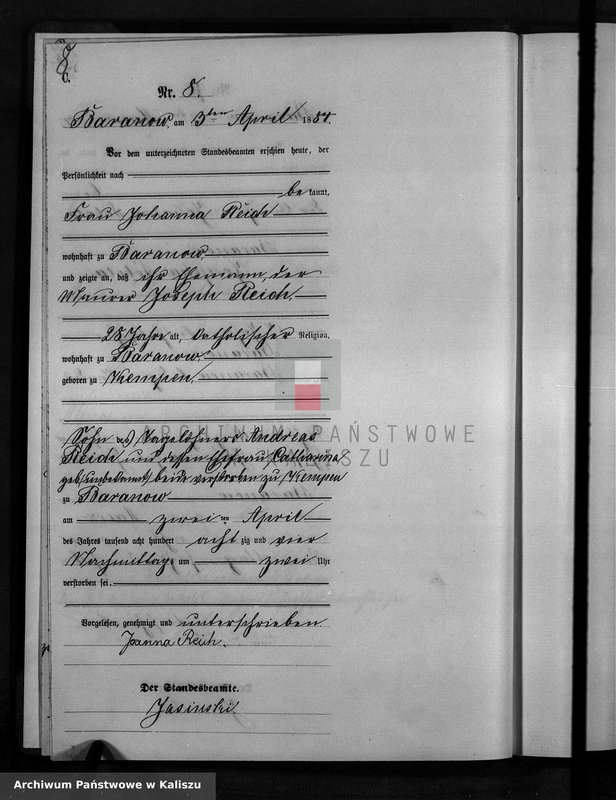 8
C.
Nr. 8.
Baranow, am 3ten April 1884.
Vor dem unterzeichneten Standesbeamten erschien heute, der
Persönlichkeit nach
be kannt,
Frau Johanna Reich
wohnhaft zu Baranow,
und zeigte an, daß ihr Ehemann, der
Maurer Joseph Reich,
28 Jahre alt, katholischer Religion,
wohnhaft zu Baranow,
geboren zu Kempen,
ARCHIWUM PAŃSTWOWE
W KALISZU
Sohn des Tagelöhners Andreas
Reich und dessen Ehefrau Catharina
geb. (unbekannt) beide verstorben zu Kempen
zu Baranow
am zwei ten April
des Jahres tausend acht hundert acht zig und vier
Nachmittags um zwei Uhr
verstorben sei.
Vorgelesen, genehmigt und unterschrieben
Joanna Reich.
Der Standesbeamte.
Jasinski.
Archiwum Państwowe w Kaliszu